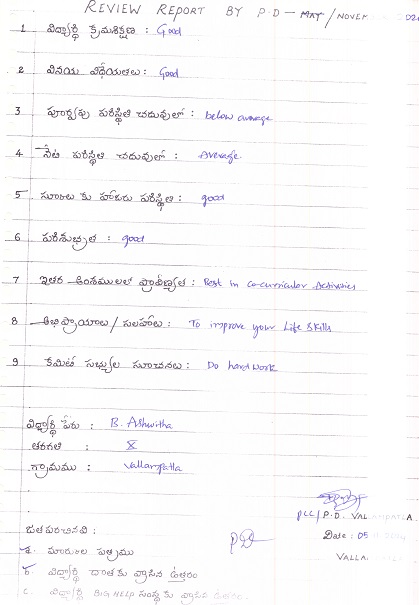 REVIEW REPORT BY P.D - MAY / NOVEM
1 విద్యార్థి క్రమశిక్షణ : Good
2 వినయ విధేయతలు : Good
3 పూర్వపు పరిస్థితి చదువులో : below average
4 నేటి పరిస్థితి చదువులో : Average.
5 స్కూలు కు హాజరు పరిస్థితి : good
6 పరిశుభ్రత : good
7 ఇతర అంశములలో ప్రావీణ్యత : Best in co-curricular Activities
8 అభిప్రాయాలు / సలహాలు : To improve your Life Skills
9 కమిటీ సభ్యుల సూచనలు : Do hard work
విద్యార్థి పేరు : B. Ashwitha
తరగతి : X
గ్రామము : Vallampatla
PLC / P.D. VALLAMPATLA
Date : 05
VALLA
జతపరచినవి :
a. మార్కుల పత్రము
b. విద్యార్థి దాతకు వ్రాసిన ఉత్తరం
c. విద్యార్థి BIG HELP సంస్థకు వ్రాసిన ఉత్తరం